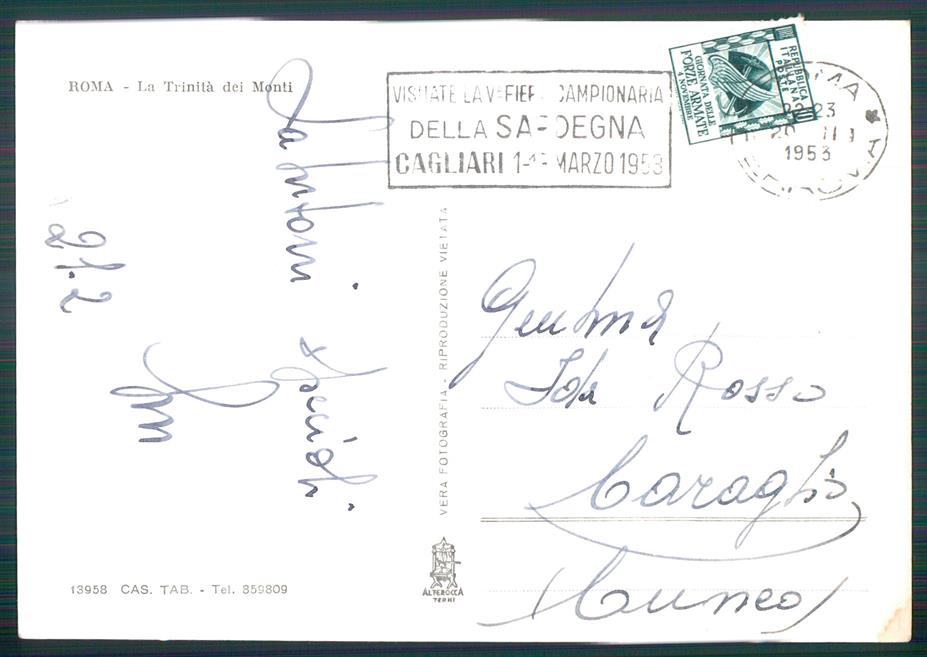 ROMA - La Trinità dei Monti
VISITATE LA Vª FIERA CAMPIONARIA
DELLA SARDEGNA
CAGLIARI 1-15 MARZO 1953
REPUBBLICA
ITALIANA
POSTE
GIORNATA DELLE
FORZE ARMATE
4 NOVEMBRE
ROMA
22-23
1953
FERROVIA
21.2
VERA FOTOGRAFIA - RIPRODUZIONE VIETATA
Ida Rosso
Caraglio
(Cuneo)
ALTEROCCA
TERNI
13958 CAS. TAB. - Tel. 859809